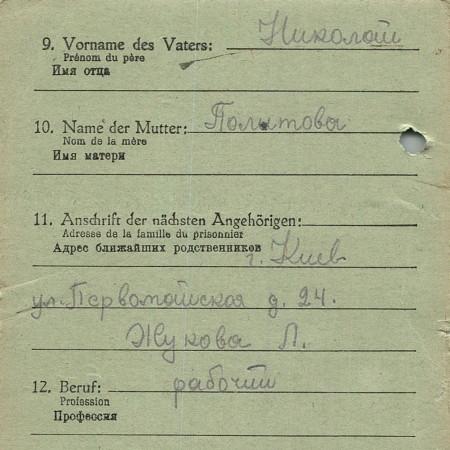 9. Vorname des Vaters: Николай
Prénom du père
Имя отца
10. Name der Mutter: Политова
Nom de la mère
Имя матери
11. Anschrift der nächsten Angehörigen:
Adresse de la famille du prisonnier
Адрес ближайших родственников г. Киев
ул. Первомайская д. 24.
Жукова Л.
12. Beruf: рабочий
Profession
Профессия